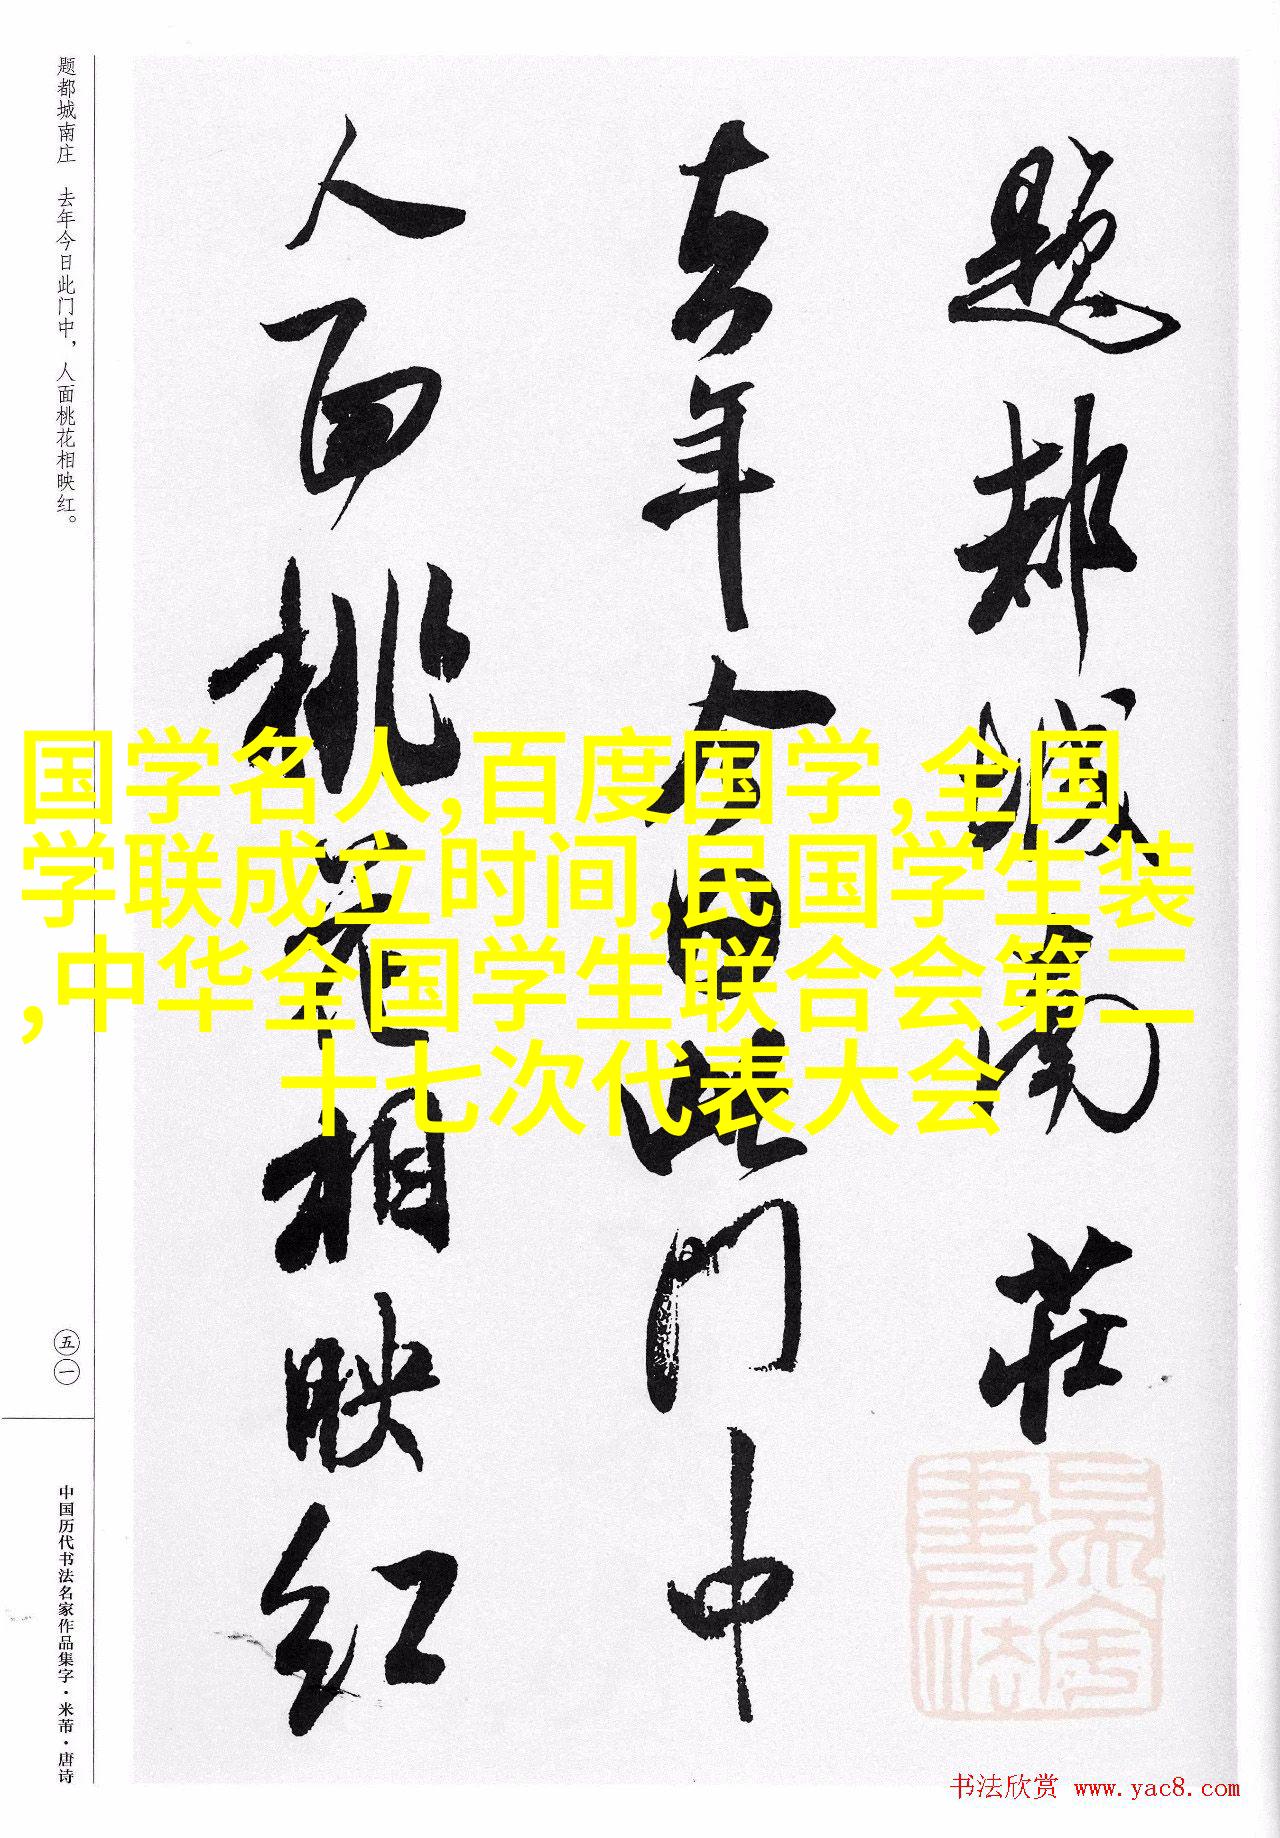 题都城南庄
去年今日此门中
人面桃花相映红
题都城南庄 去年今日此门中，人面桃花相映红。
五一
中国历代书法名家作品集字·米芾·唐诗
国学名人,百度国学,全国
学联成立时间,民国学生装
,中华全国学生联合会第二
十七次代表大会
書法
书法欣赏 www.yac8.com